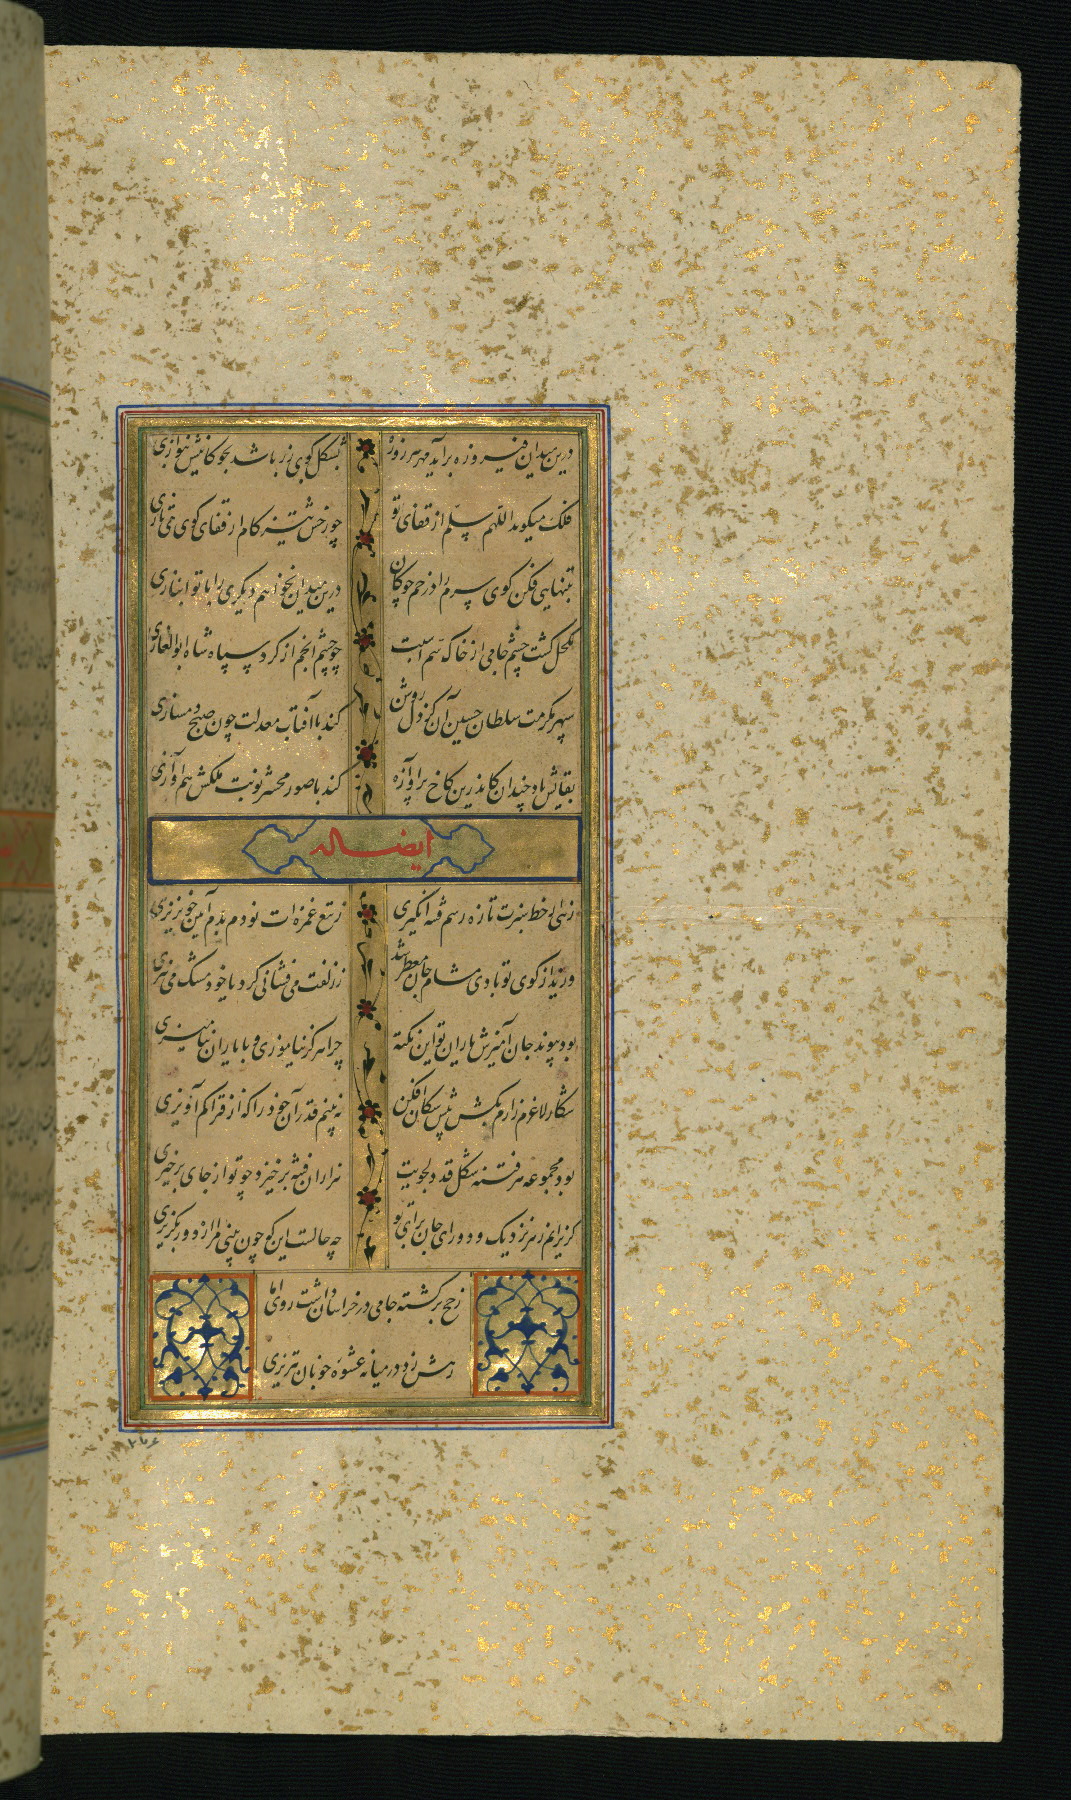 درین میدان فیروزه برآید مهر هر روزه بشکل کوی زر باشد بچوکانیش بنوازی
فلک میکوید اللهم سلم از قفای تو چو رخش تیز کام از قفای کوی می تازی
بتنهایی فکن کوی سرم را در خم چوکان درین میدان نخواهم دیکری را با تو انبازی
مکحل کشت چشم جامی از خاک سم اسبت چو چشم انجم از کرد سپاه شاه ابوالغازی
سپهر مکرمت سلطان حسین آن کز دل روشن کند با آفتاب معدلت چون صبح دمسازی
بقایش باد چندان کاندرین کاخ پر آوازه کند با صور محشر نوبت ملکش هم آوازی
ایضاله
زهی از خط سبزت تازه رسم فتنه انکیزی ز تیغ غمزه ات نو دم بدم آیین خونریزی
وزید از کوی تو بادی مشام جان معطر شد ز زلفت می فشانی کرد یا خود مشک می بیزی
بود پیوند جان آمیزش یاران تو این نکته چرا هرکز نیاموزی و با یاران نیامیزی
شکار لاغرم زارم بکش پیش سکان افکن نه بینم قدر آن خود را که از فتراکم آویزی
بود مجموعه هر فتنه شکل قد دلجویت هزاران فتنه برخیزد چو تو از جای برخیزی
کریزانم ز هر نزدیک و دور ای جان برای تو چه حالست این که چون بینی مرا از دور بکریزی
ز حج برکشته جامی در خراسان داشت رو اما
رهش زد در میانه عشوه خوبان تبریزی